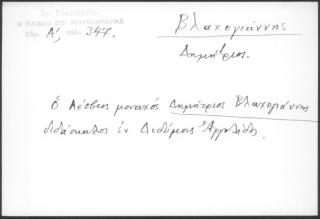 Τρ. Ευαγγελίδου
Η ΠΑΙΔΕΙΑ ΕΠΙ ΤΟΥΡΚΟΚΡΑΤΙΑΣ
τόμ. Α', σελ. 347.
Βλαχογιάννης
Δημήτριος.
Ο Λέσβιος μοναχός Δημήτριος Βλαχογιάννης
διδάσκαλος ἐν Διδύμοις Ἀργολίδος.